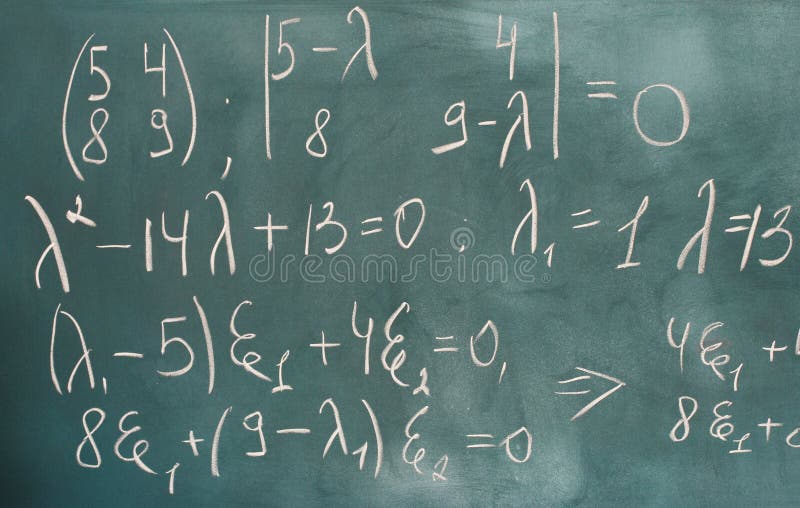 (5 4
8 9); |5-λ 4
8 9-λ| = 0
λ² - 14λ + 13 = 0 ; λ₁ = 1 λ = 13
(λ₁ - 5)ξ₁ + 4ξ₂ = 0, ⇒ 4ξ₁ +
8ξ₁ + (9 - λ₁)ξ₂ = 0 8ξ₁ +
dreamstime